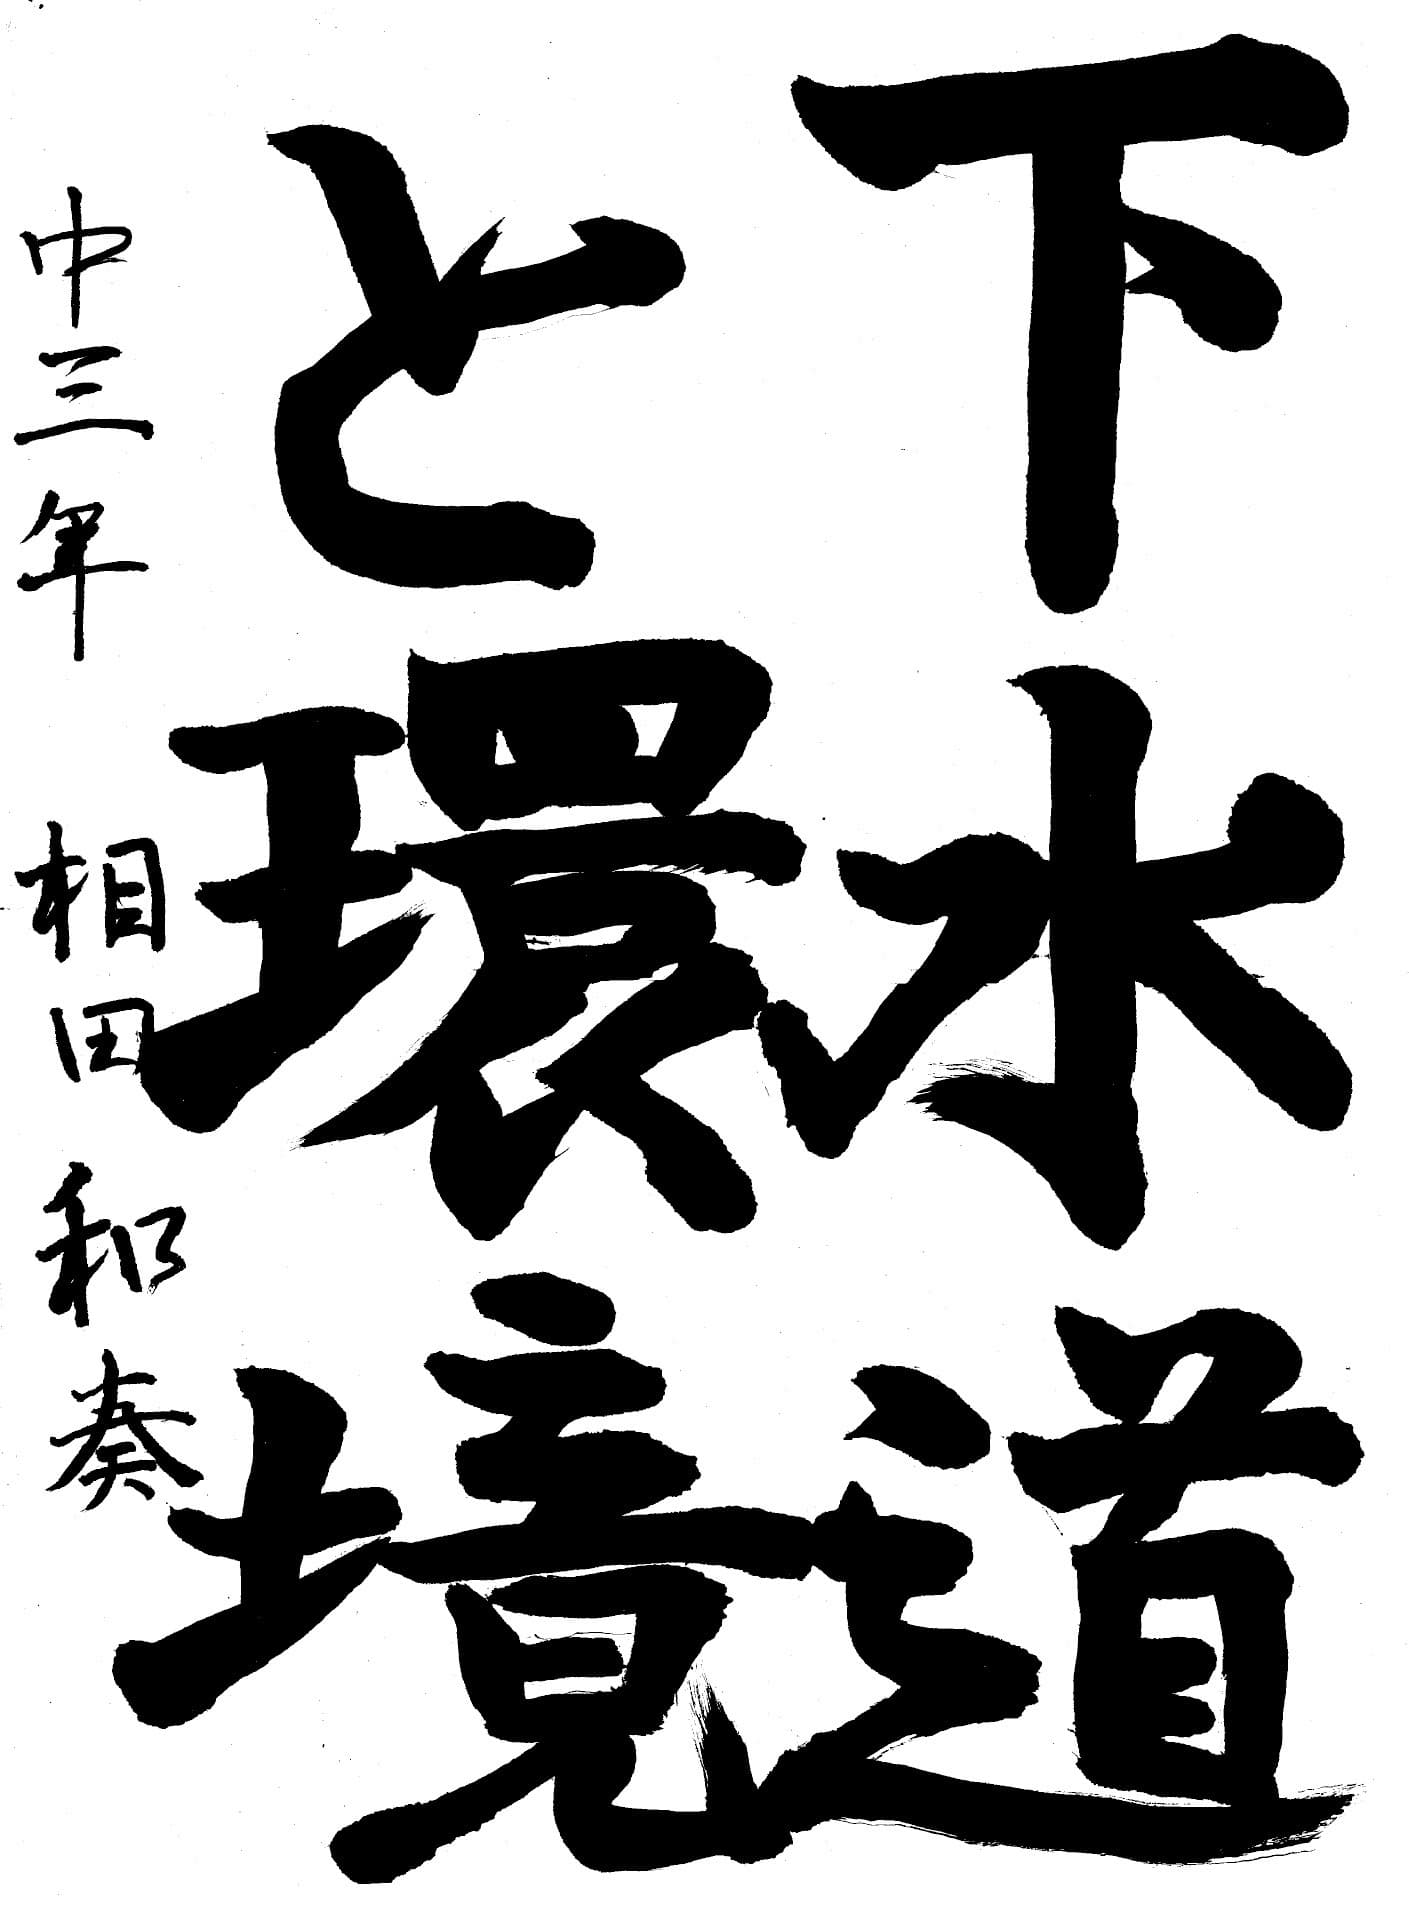 下水道
と環境
中三年 相田和奏